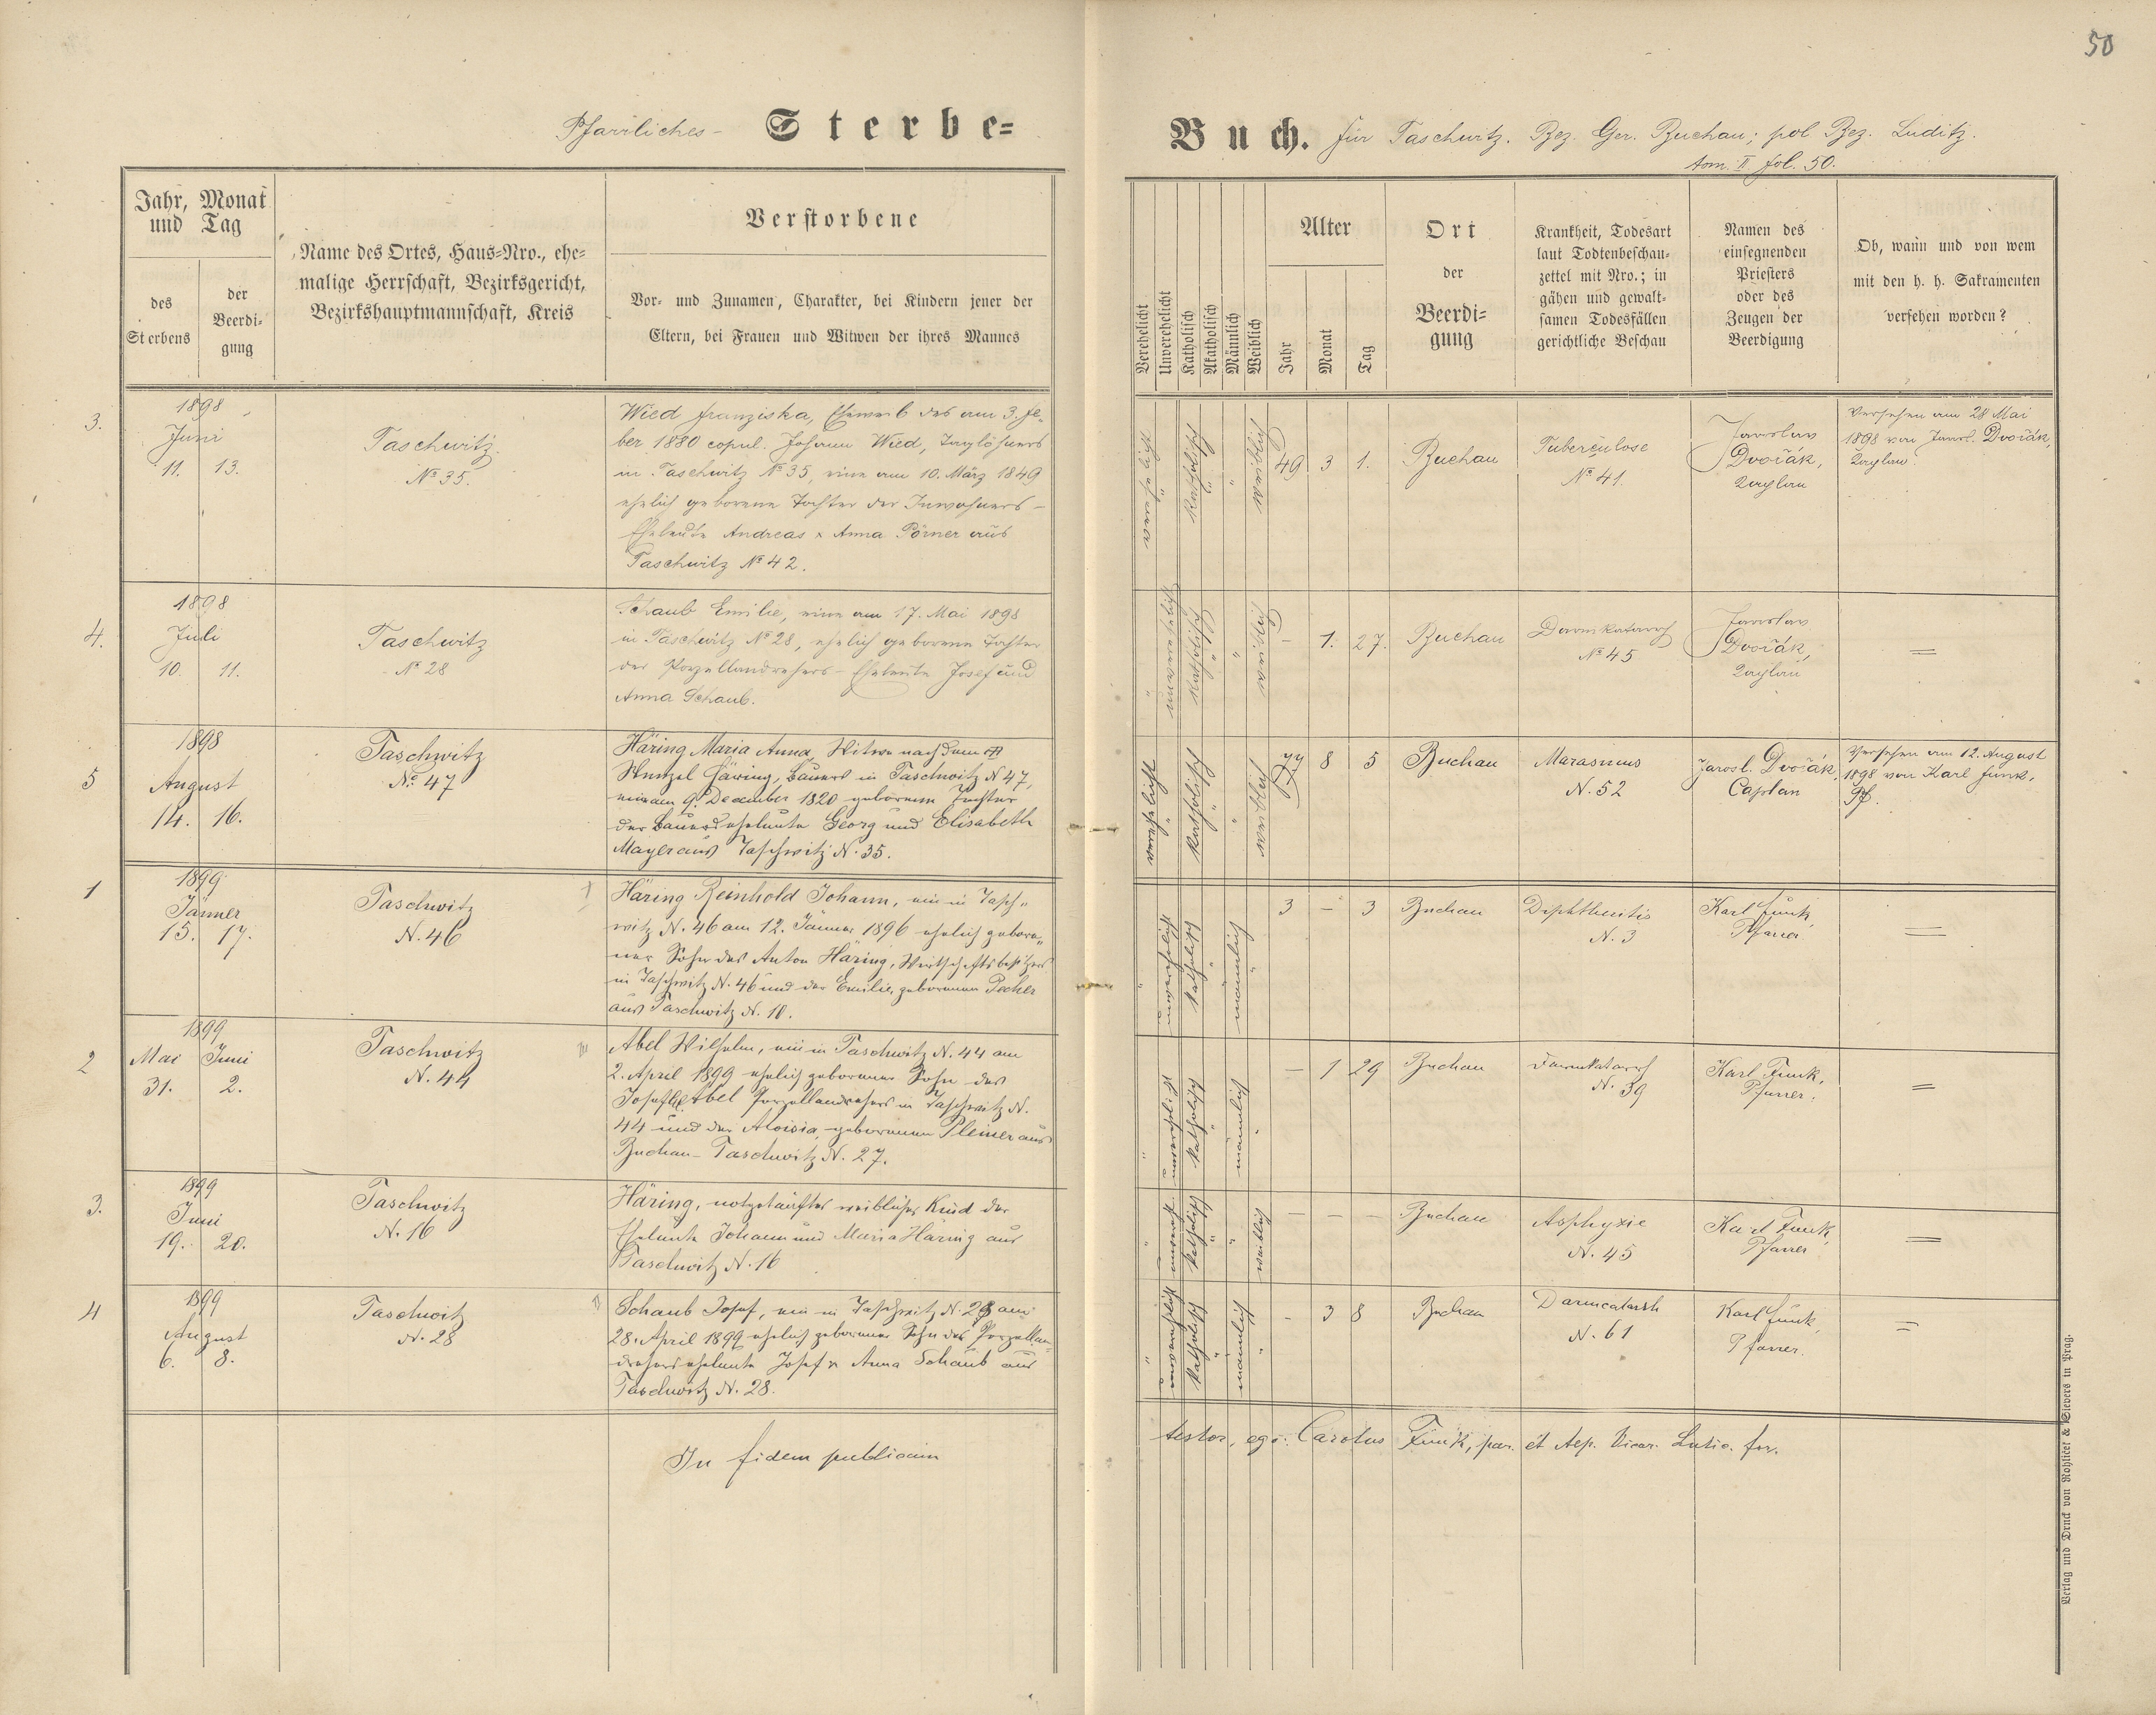 50
Pfarrliches- Sterbe-
Buch. für Taschwitz. Bez. Ger. Buchau; pol Bez. Luditz.
tom. II fol. 50.
Jahr, Monat
und Tag
des
Sterbens
der
Beerdi-
gung
Name des Ortes, Haus-Nro., ehe-
malige Herrschaft, Bezirksgericht,
Bezirkshauptmannschaft, Kreis
Verstorbene
Vor- und Zunamen, Charakter, bei Kindern jener der
Eltern, bei Frauen und Witwen der ihres Mannes
Verehelicht
Unverehelicht
Katholisch
Akatholisch
Männlich
Weiblich
Alter
Jahr
Monat
Tag
Ort
der
Beerdi-
gung
Krankheit, Todesart
laut Todtenbeschau-
zettel mit Nro.; in
gähen und gewalt-
samen Todesfällen
gerichtliche Beschau
Namen des
einsegnenden
Priesters
oder des
Zeugen der
Beerdigung
Ob, wann und von wem
mit den h. h. Sakramenten
versehen worden?
3.
1898
Juni
11. 13.
Taschwitz.
No 35.
Wied Franziska, Eheweib des am 3. Fe-
ber 1880 copul. Johann Wied, Taglöhners
in Taschwitz No 35, eine am 10. März 1849
ehelich geborene Tochter der Inwohners-
Eheleute Andreas & Anna Pörner aus
Taschwitz No 42.
verehelicht
"
katholisch
"
"
weiblich
49 3 1.
Buchau
Tuberculose
No 41.
Jaroslav
Dvořák,
Kaplan
Versehen am 28 Mai
1898 von Jarosl. Dvořák,
Kaplan
4.
1898
Juli
10. 11.
Taschwitz
No 28
Schaub Emilie, eine am 17. Mai 1898
in Taschwitz No 28, ehelich geborene Tochter
der Porzellandrehers-Eheleute Josef und
Anna Schaub.
"
unverehelicht
katholisch
"
"
weiblich
- 1. 27.
Buchau
Darmkatarrh
No 45
Jaroslav
Dvořák,
Kaplan
=
5
1898
August
14. 16.
Taschwitz
No 47
Häring Maria Anna, Witwe nach dem
Wenzel Häring, Bauers in Taschwitz N 47,
eine am 9. December 1820 geborene Tochter
der Bauerseheleute Georg und Elisabeth
Mayer aus Taschwitz N. 35.
verehelicht
"
katholisch
"
"
weiblich
77 8 5
Buchau
Marasmus
N. 52
Jarosl. Dvořák,
Caplan
Versehen am 12. August
1898 von Karl Funk,
Pf.
1
1899
Jänner
15. 17.
Taschwitz
N. 46
Häring Reinhold Johann, ein in Tasch-
witz N. 46 am 12. Jänner 1896 ehelich gebore-
ner Sohn des Anton Häring, Wirtschaftsbesitzers
in Taschwitz N. 46 und der Emilie, geborenen Pecher
aus Taschwitz N. 18.
"
unverehelicht
katholisch
"
männlich
"
3 - 3
Buchau
Diphtheritis
N. 3
Karl Funk,
Pfarrer
=
2
1899
Mai Juni
31. 2.
Taschwitz
N. 44
Abel Wilhelm, ein in Taschwitz N. 44 am
2. April 1899 ehelich geborener Sohn des
Josef Abel Porzellandrehers in Taschwitz N.
44 und der Aloisia, geborenen Pleiner aus
Buchau-Taschwitz N. 27.
"
unverehelicht
katholisch
"
männlich
"
- 1 29
Buchau
Darmkatarrh
N. 39
Karl Funk,
Pfarrer.
=
3.
1899
Juni
19. 20.
Taschwitz
N. 16
Häring, notgetauftes weibliches Kind der
Eheleute Johann und Maria Häring aus
Taschwitz N. 16
"
unverehl.
katholisch
"
"
weiblich
- - -
Buchau
Asphyxie
N. 45
Karl Funk,
Pfarrer
=
4
1899
August
6. 8.
Taschwitz
N. 28
Schaub Josef, ein in Taschwitz N. 28 am
28. April 1899 ehelich geborener Sohn des Porzellan-
dreherseheleute Josef & Anna Schaub aus
Taschwitz N. 28.
"
unverehelicht
katholisch
"
männlich
"
- 3 8
Buchau
Darmcatarrh
N. 61
Karl Funk,
Pfarrer.
=
In fidem publicam
testor, ego: Carolus Funk, par. et Aep. Vicar. Lutic. for.
Verlag und Druck von Rohlicek & Sievers in Prag.